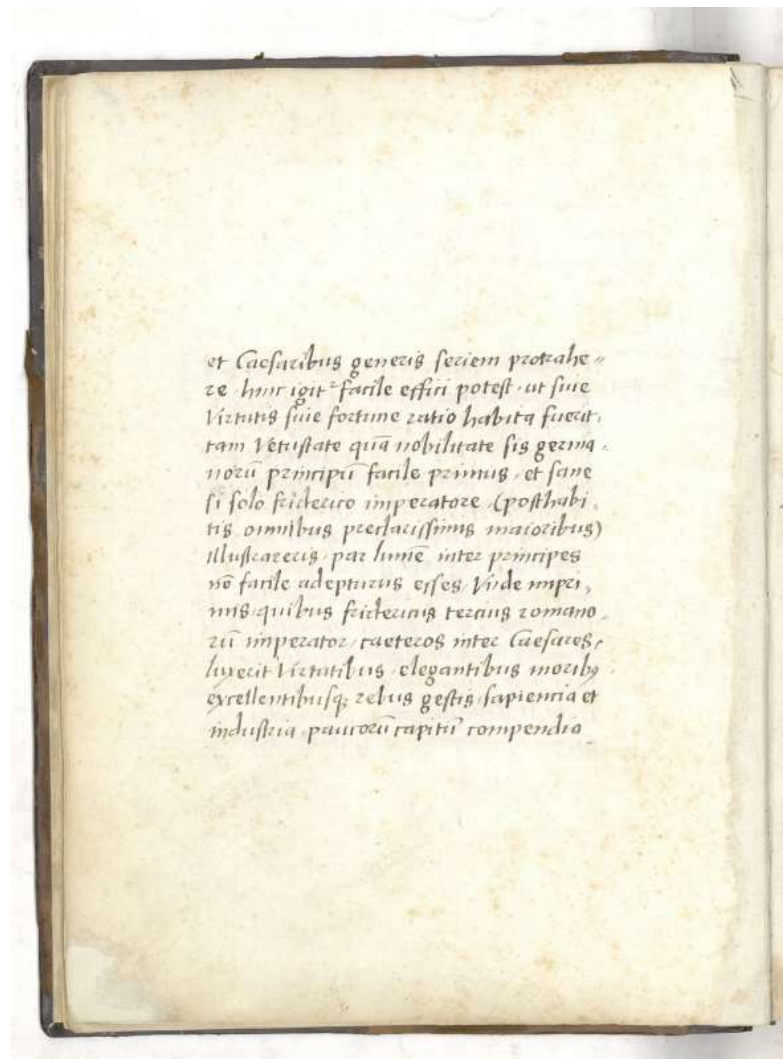 et Caesaribus generis seriem protrahe〃
re, hinc igit᷑ facile effici potest, ut siue
Virtutis siue fortune ratio habita fuerit,
tam Vetustate quā nobilitate sis germa,
norū principū facile primus, et sane
si solo friderico imperatore, (posthabi,
tis omnibus preclarissimis maioribus)
illustrareris, par lumē inter principes
nō facile adepturus esses, Vnde impri,
mis, quibus fridericus tercius romano,
rū imperator, caeteros inter Caesares,
luxerit Virtutibus, elegantibus moribꝰ,
excellentibusqꝫ rebus gestis, sapiencia et
industria, paucorū capitū compendio